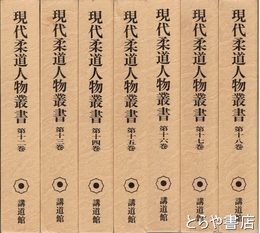 現代柔道人物叢書
第十二巻
講道館
現代柔道人物叢書
第十三巻
講道館
現代柔道人物叢書
第十四巻
講道館
現代柔道人物叢書
第十五巻
講道館
現代柔道人物叢書
第十六巻
講道館
現代柔道人物叢書
第十七巻
講道館
現代柔道人物叢書
第十八巻
講道館
とらや書店